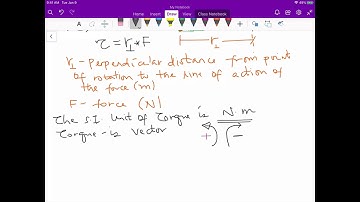 My Notebook
Home Insert Draw View Class Notebook
τ = r⊥ * F
r⊥
r⊥ - perpendicular distance from points
of rotation to the line of action of
the force (m)
F - force (N)
The S.I unit of torque is N.m
Torque - is vector
+ -